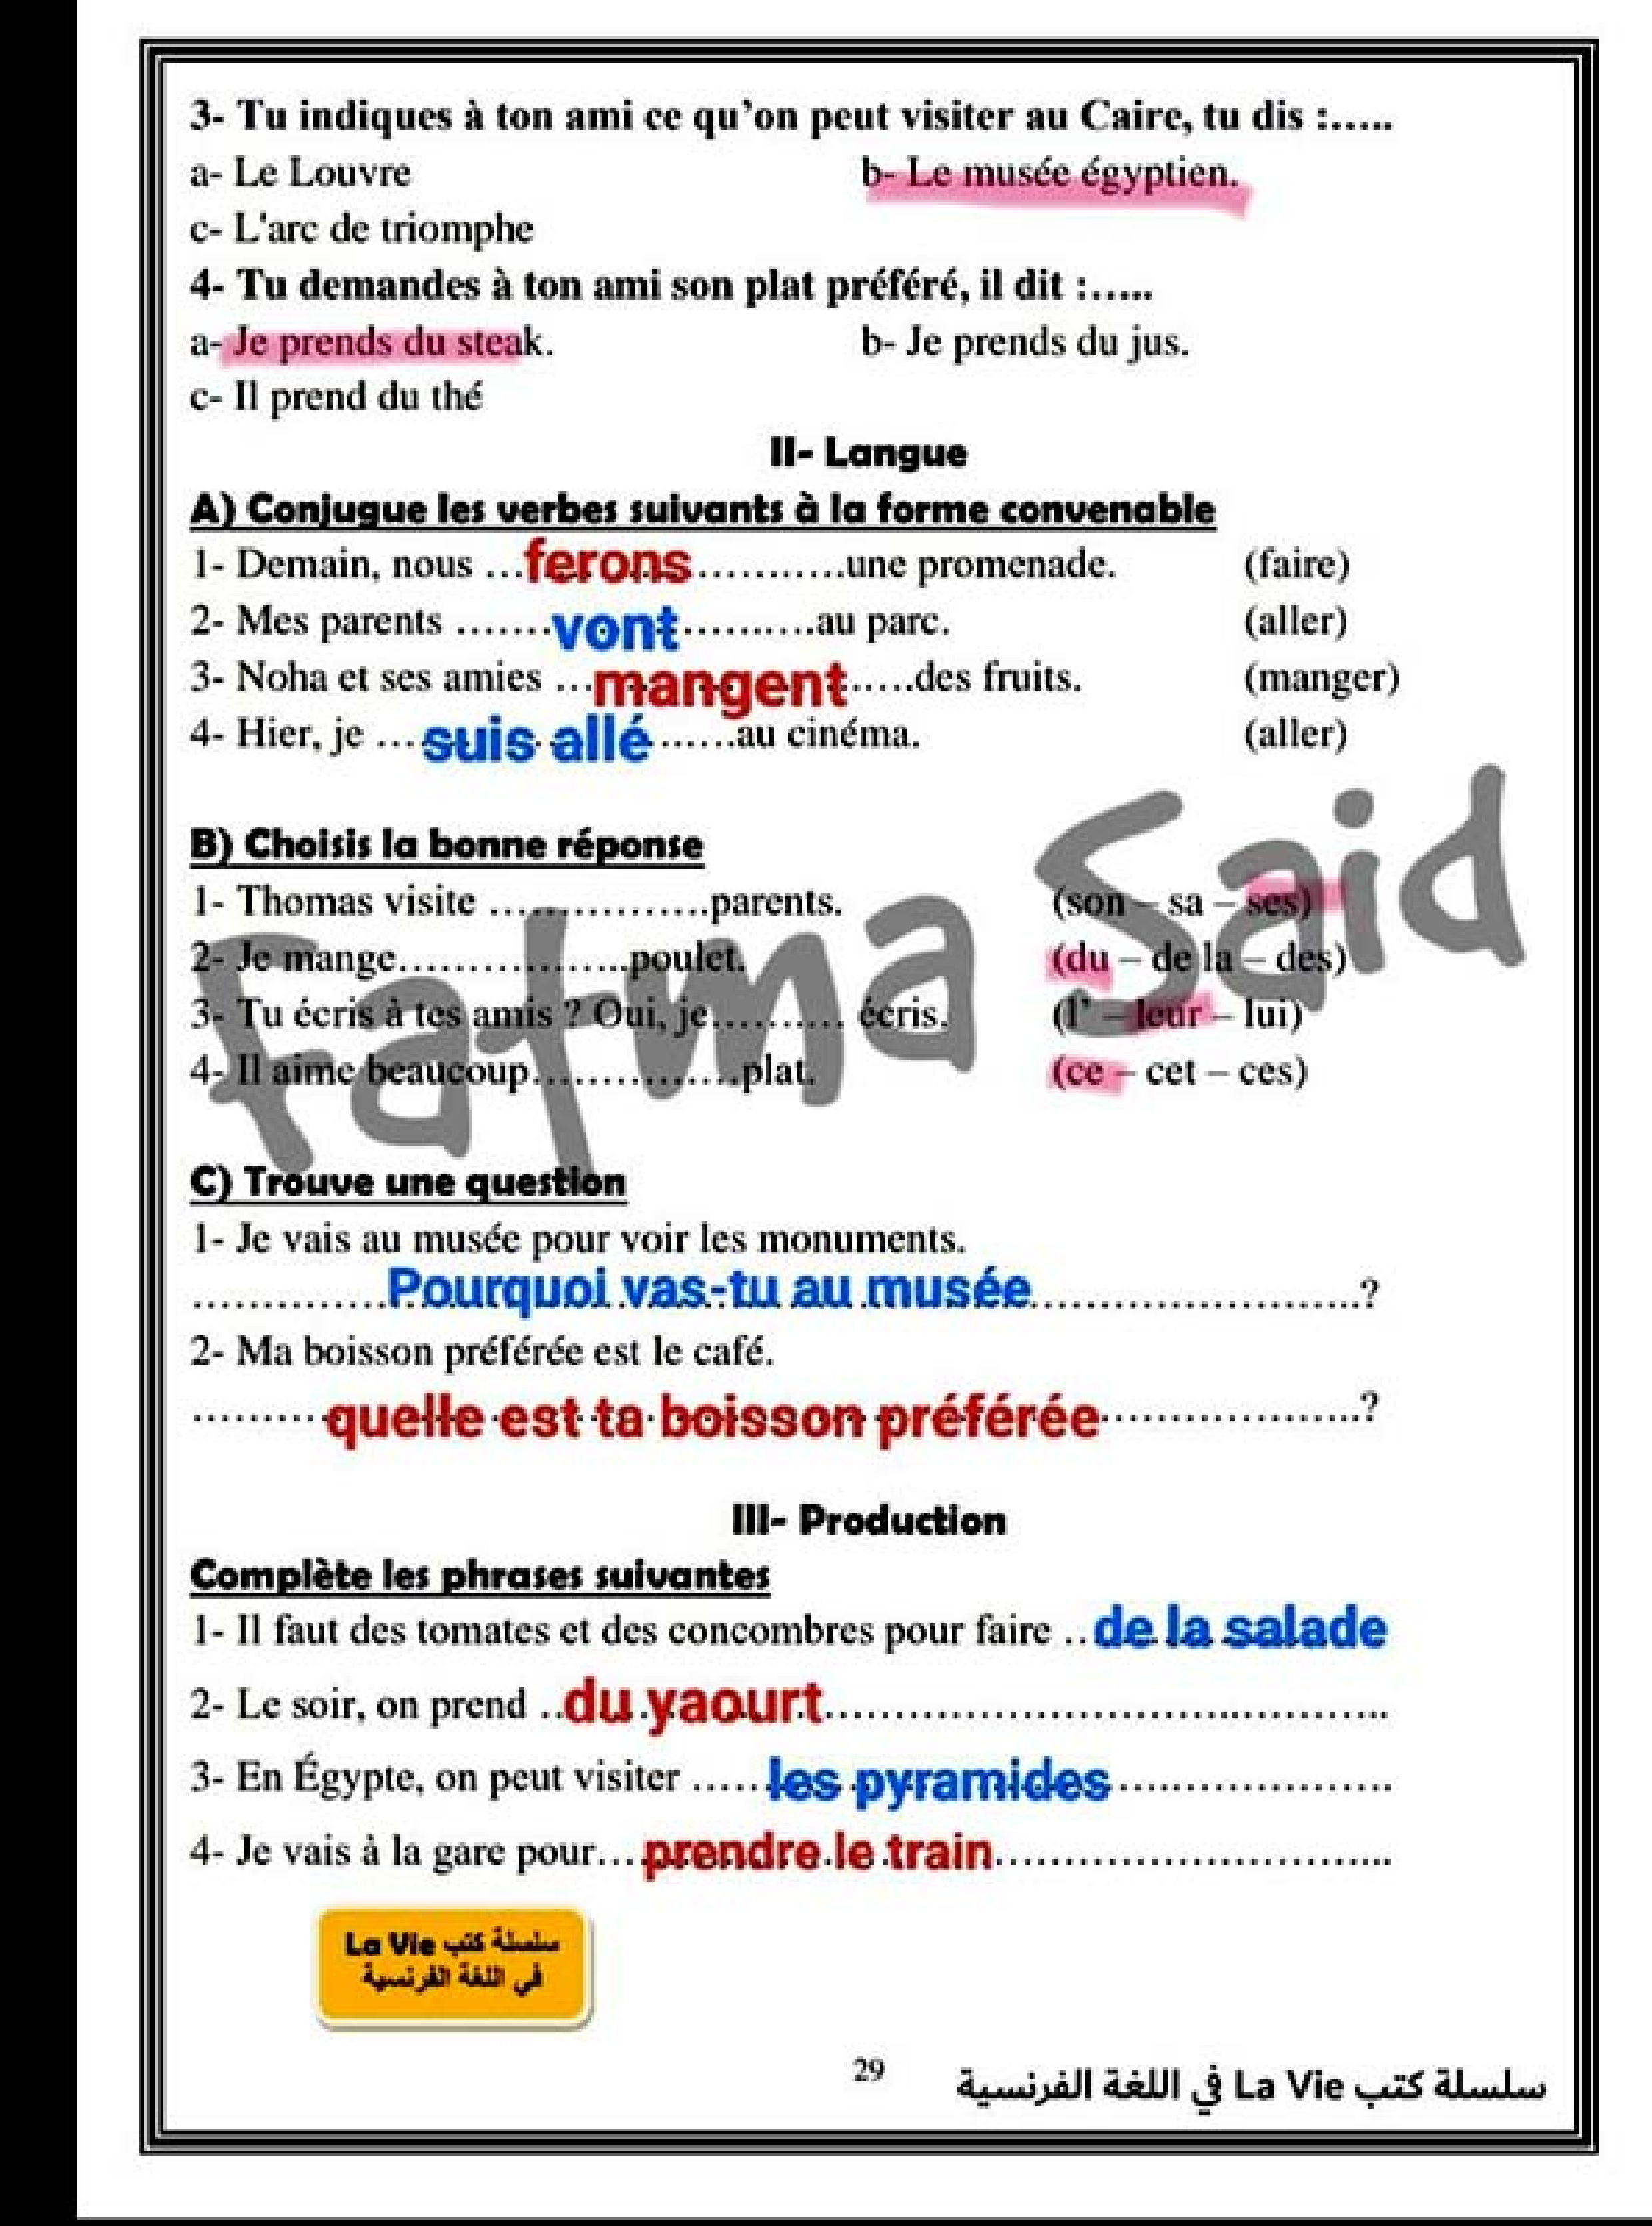 3- Tu indiques à ton ami ce qu'on peut visiter au Caire, tu dis :.....
a- Le Louvre b- Le musée égyptien.
c- L'arc de triomphe
4- Tu demandes à ton ami son plat préféré, il dit :.....
a- Je prends du steak. b- Je prends du jus.
c- Il prend du thé
II- Langue
A) Conjugue les verbes suivants à la forme convenable
1- Demain, nous ...ferons...........une promenade. (faire)
2- Mes parents .......vont..........au parc. (aller)
3- Noha et ses amies ...mangent.....des fruits. (manger)
4- Hier, je ...suis allé......au cinéma. (aller)
B) Choisis la bonne réponse
1- Thomas visite ................parents. (son – sa – ses)
2- Je mange.................poulet. (du – de la – des)
3- Tu écris à tes amis ? Oui, je.......... écris. (l' – leur – lui)
4- Il aime beaucoup...............plat. (ce – cet – ces)
Fatma Said
C) Trouve une question
1- Je vais au musée pour voir les monuments.
..............Pourquoi vas-tu au musée........................?
2- Ma boisson préférée est le café.
..........quelle est ta boisson préférée...................?
III- Production
Complète les phrases suivantes
1- Il faut des tomates et des concombres pour faire ..de la salade
2- Le soir, on prend ..du yaourt........................................
3- En Égypte, on peut visiter .....les pyramides....................
4- Je vais à la gare pour...prendre le train............................
سلسلة كتب La Vie
في اللغة الفرنسية
29 سلسلة كتب La Vie في اللغة الفرنسية